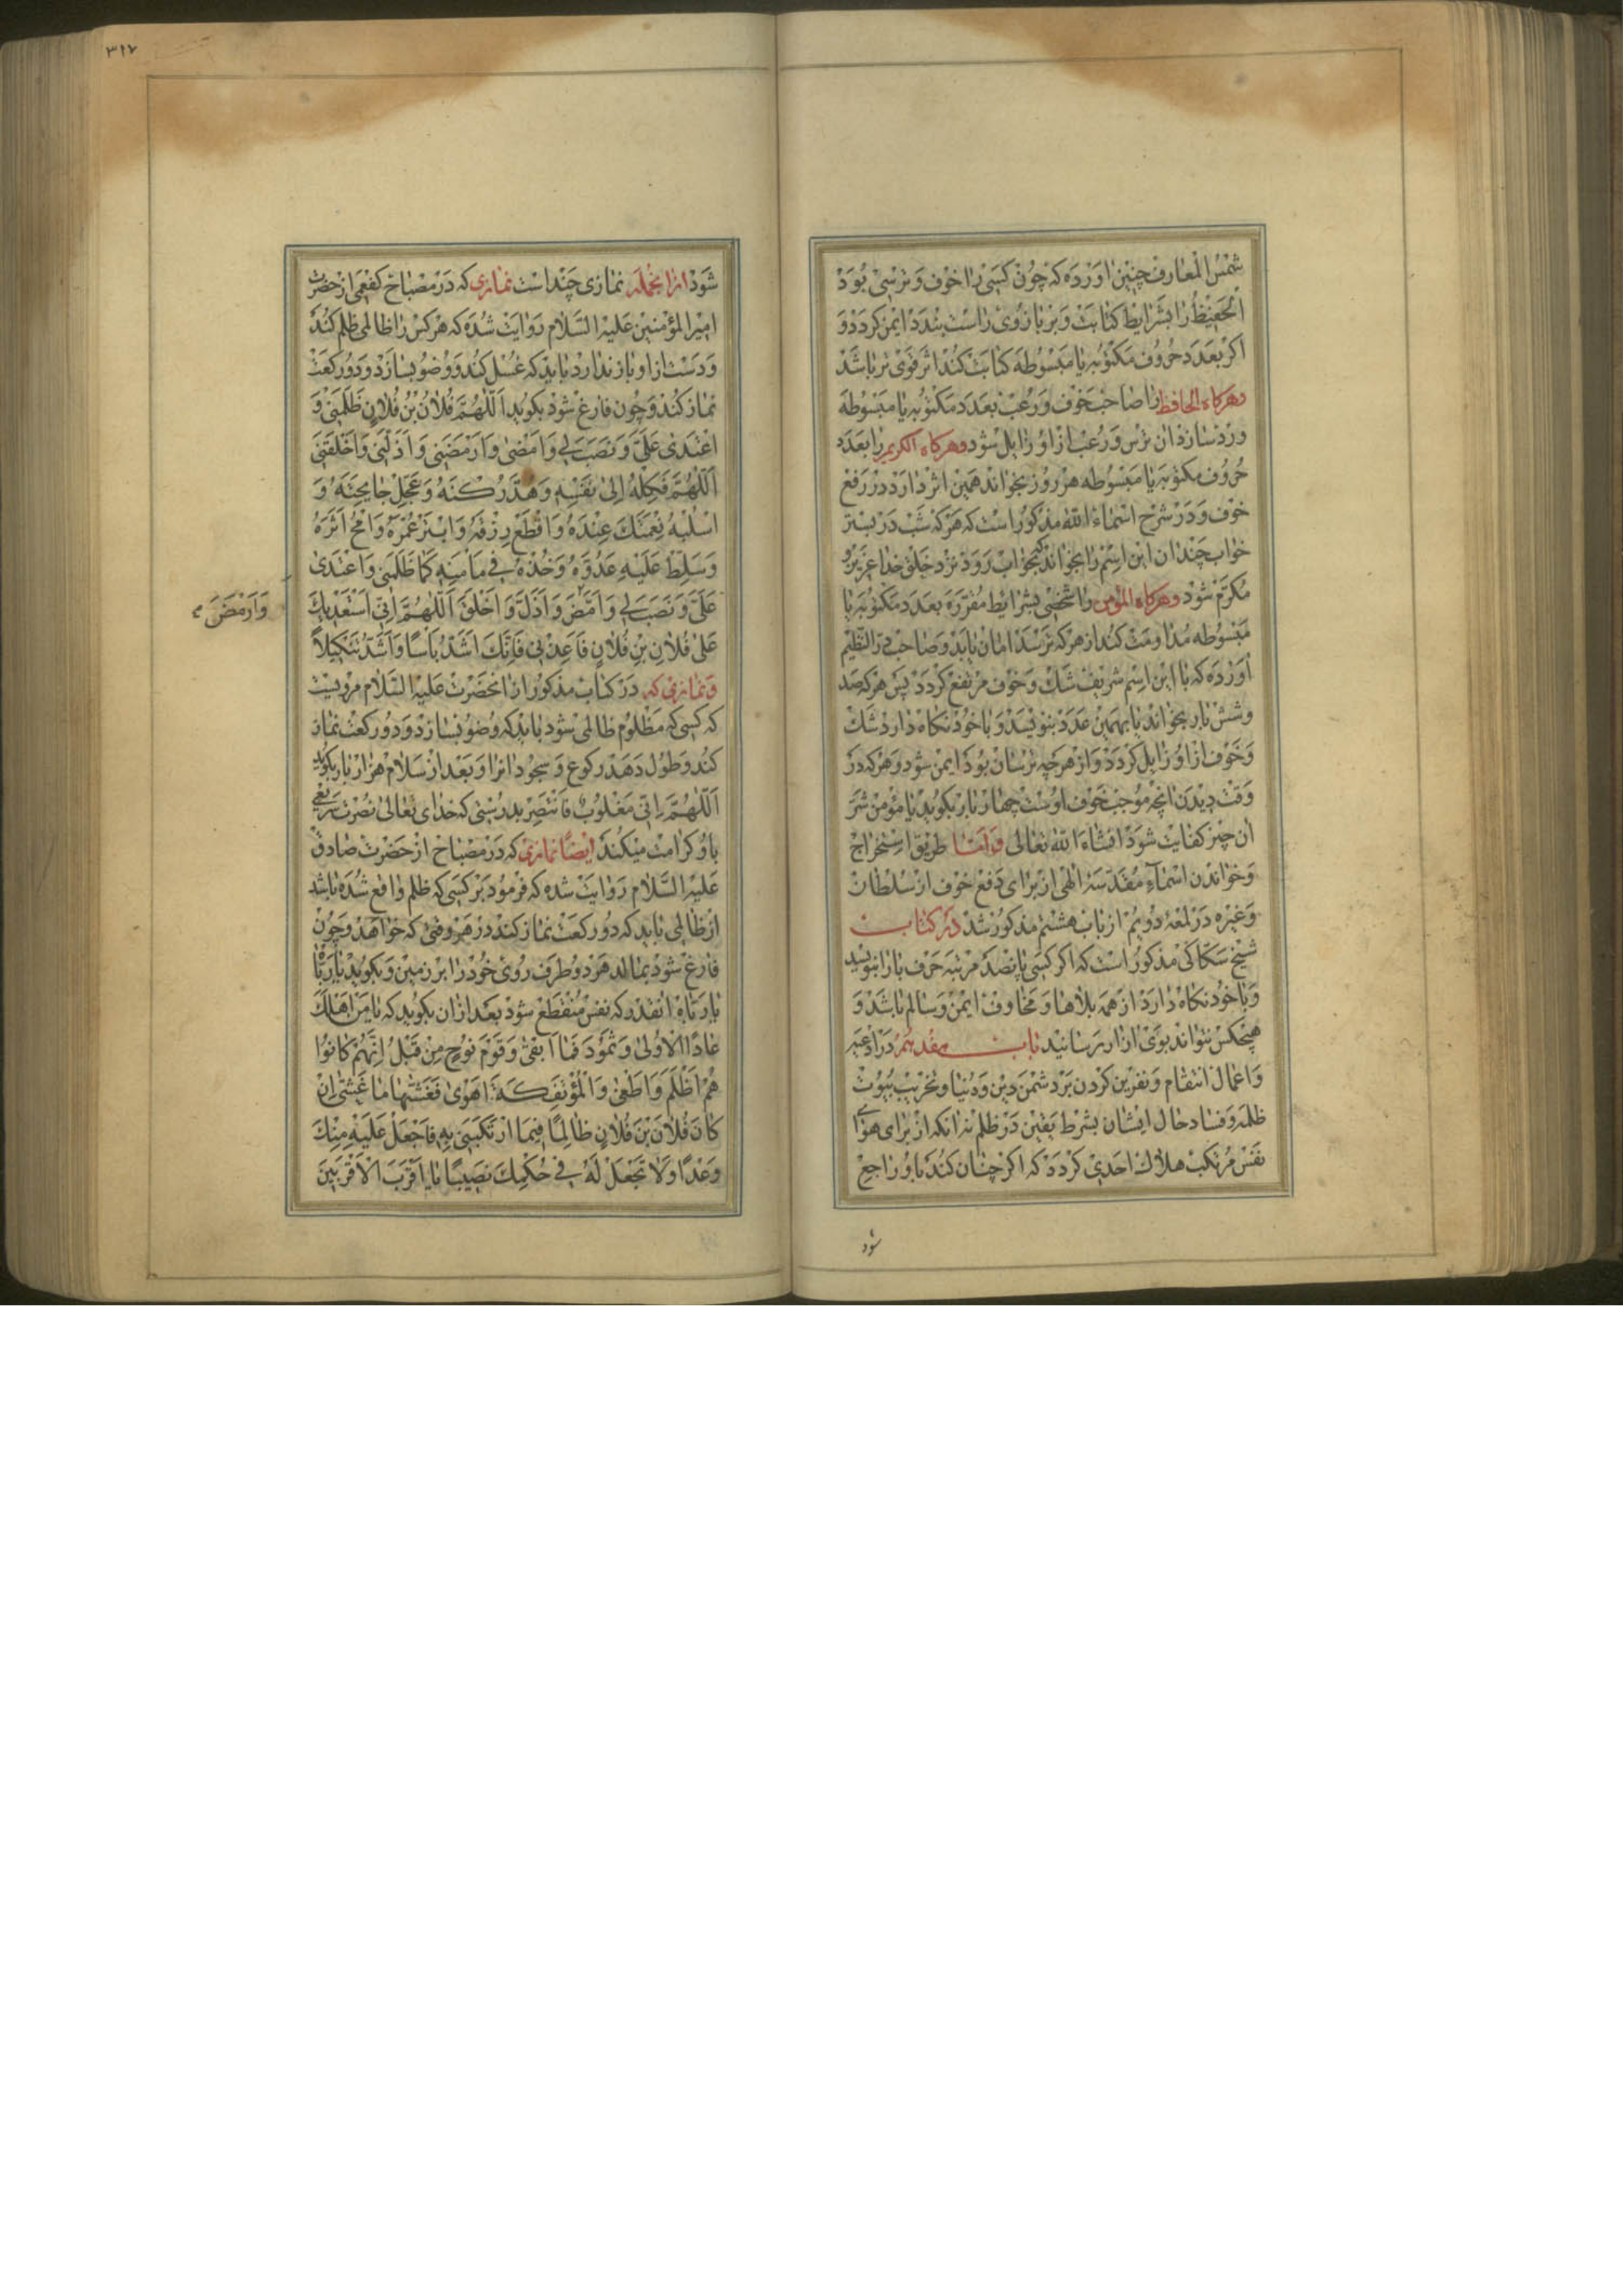 شمس المعارف چنین اورده که چون کسی را خوف و ترسی بود
الحفیظ را بشرایط کتابت و بر بازوی راست بندد ایمن کردد و
اکر بعدد حروف مکتوبه یا مبسوطه کتابت کند اثر قوی تر باشد
و هرکاه الحافظ را صاحب خوف و رعب بعدد مکتوبه یا مبسوطه
ورد سازد ان ترس و رعب از او زایل شود و هرکاه الکریم را بعدد
حروف مکتوبه یا مبسوطه هر روز بخواند همین اثر دارد در رفع
خوف و در شرح اسماء الله مذکور است که هر که شب در بستر
خواب چندان این اسم را بخواند که بخواب رود نزد خلق خدا عزیز و
مکرم شود و هرکاه المؤمن را شخصی بشرایط مقرره بعدد مکتوبه یا
مبسوطه مداومت کند از هر که ترسد امان یابد و صاحب در النظیم
اورده که با این اسم شریف شک و خوف مرتفع کردد پس هر که صد
و شش بار بخواند یا بهمین عدد بنویسد و با خود نکاه دارد شک
و خوف از او زایل کردد و از هرچه ترسان بود ایمن شود و هر که در
وقت دیدن انچه موجب خوف اوست چهار بار بکوید یا مؤمن شر
ان چیز کفایت شود انشاء الله تعالی و اما طریق استخراج
و خواندن اسمآء مقدسه الهی از برای دفع خوف از سلطان
و غیره در لمعه دویم از باب هشتم مذکور شد در کتاب
شیخ سکاکی مذکور است که اکر کسی پانصد مرتبه حرف با را بنویسد
و با خود نکاه دارد از همه بلاها و مخاوف ایمن و سالم باشد و
هیچکس نتواند بوی ازار رسانید باب هفدهم در ادعیه
و اعمال انتقام و نفرین کردن بر دشمن دین و دنیا و تخریب بیوت
ظلمه و فساد حال ایشان بشرط یقین در ظلم نه انکه از برای هوای
نفس مرتکب هلاک احدی کردد که اکر چنان کند باو راجع
شود
۳۱۷
شود ازانجمله نمازی چند است نمازی که در مصباح کفعمی از حضرت
امیر المؤمنین علیه السلام روایت شده که هر کس را ظالمی ظلم کند
و دست از او باز ندارد باید که غسل کند و وضو بسازد و دو رکعت
نماز کند و چون فارغ شود بکوید اَللّٰهُمَّ فُلانُ بْنُ فُلانٍ ظَلَمَنی وَ
اعْتَدیٰ عَلَیَّ وَ نَصَبَ لی وَ اَمَضَّنی وَ اَرْمَضَنی وَ اَذَلَّنی وَ اَخْلَقَنی
اَللّٰهُمَّ فَکِلْهُ اِلیٰ نَفْسِهِ وَ هُدَّ رُکْنَهُ وَ عَجِّلْ جٰائِحَتَهُ وَ
اسْلُبْهُ نِعْمَتَکَ عِنْدَهُ وَ اقْطَعْ رِزْقَهُ وَ ابْتَرْ عُمْرَهُ وَ امْحُ اَثَرَهُ
وَ سَلِّطْ عَلَیْهِ عَدُوَّهُ وَ خُذْهُ فی مَأْمَنِهِ کَمٰا ظَلَمَنی وَ اعْتَدیٰ
عَلَیَّ وَ نَصَبَ لی وَ اَمَضَّ وَ اَذَلَّ وَ اَخْلَقَ اَللّٰهُمَّ اِنّی اَسْتَعْدیکَ
وَ اَرْمَضَ
عَلیٰ فُلانِ بْنِ فُلانٍ فَاَعِدْنی فَاِنَّکَ اَشَدُّ بَأْساً وَ اَشَدُّ تَنْکیلاً
و نمازی که در کتاب مذکور از انحضرت علیه السلام مرویست
که کسی که مظلوم ظالمی شود باید که وضو بسازد و دو رکعت نماز
کند و طول دهد رکوع و سجود انرا و بعد از سلام هزار بار بکوید
اَللّٰهُمَّ اِنّی مَغْلُوبٌ فَانْتَصِرْ بدرستی که خدای تعالی نصرت سریعی
باو کرامت میکند ایضاً نمازی که در مصباح از حضرت صادق
علیه السلام روایت شده که فرمود بر کسی که ظلم واقع شده باشد
از ظالمی باید که دو رکعت نماز کند در هر وقتی که خواهد و چون
فارغ شود بمالد هر دو طرف روی خود را بر زمین و بکوید یا رباه
یا رباه انقدر که نفس منقطع شود بعد ازان بکوید که یٰا مَنْ اَهْلَکَ
عٰادًا الْاُولیٰ وَ ثَمُودَ فَمٰا اَبْقیٰ وَ قَوْمَ نُوحٍ مِنْ قَبْلُ اِنَّهُمْ کٰانُوا
هُمْ اَظْلَمَ وَ اَطْغیٰ وَ الْمُؤْتَفِکَةَ اَهْویٰ فَغَشّٰیهٰا مٰا غَشّٰی اِنْ
کٰانَ فُلانُ بْنُ فُلانٍ ظٰالِمًا فیمَا ارْتَکَبَنی بِهِ فَاجْعَلْ عَلَیْهِ مِنْکَ
وَعْدًا وَ لٰا تَجْعَلْ لَهُ فی حُکْمِکَ نَصیبًا یٰا اَقْرَبَ الْاَقْرَبینَ